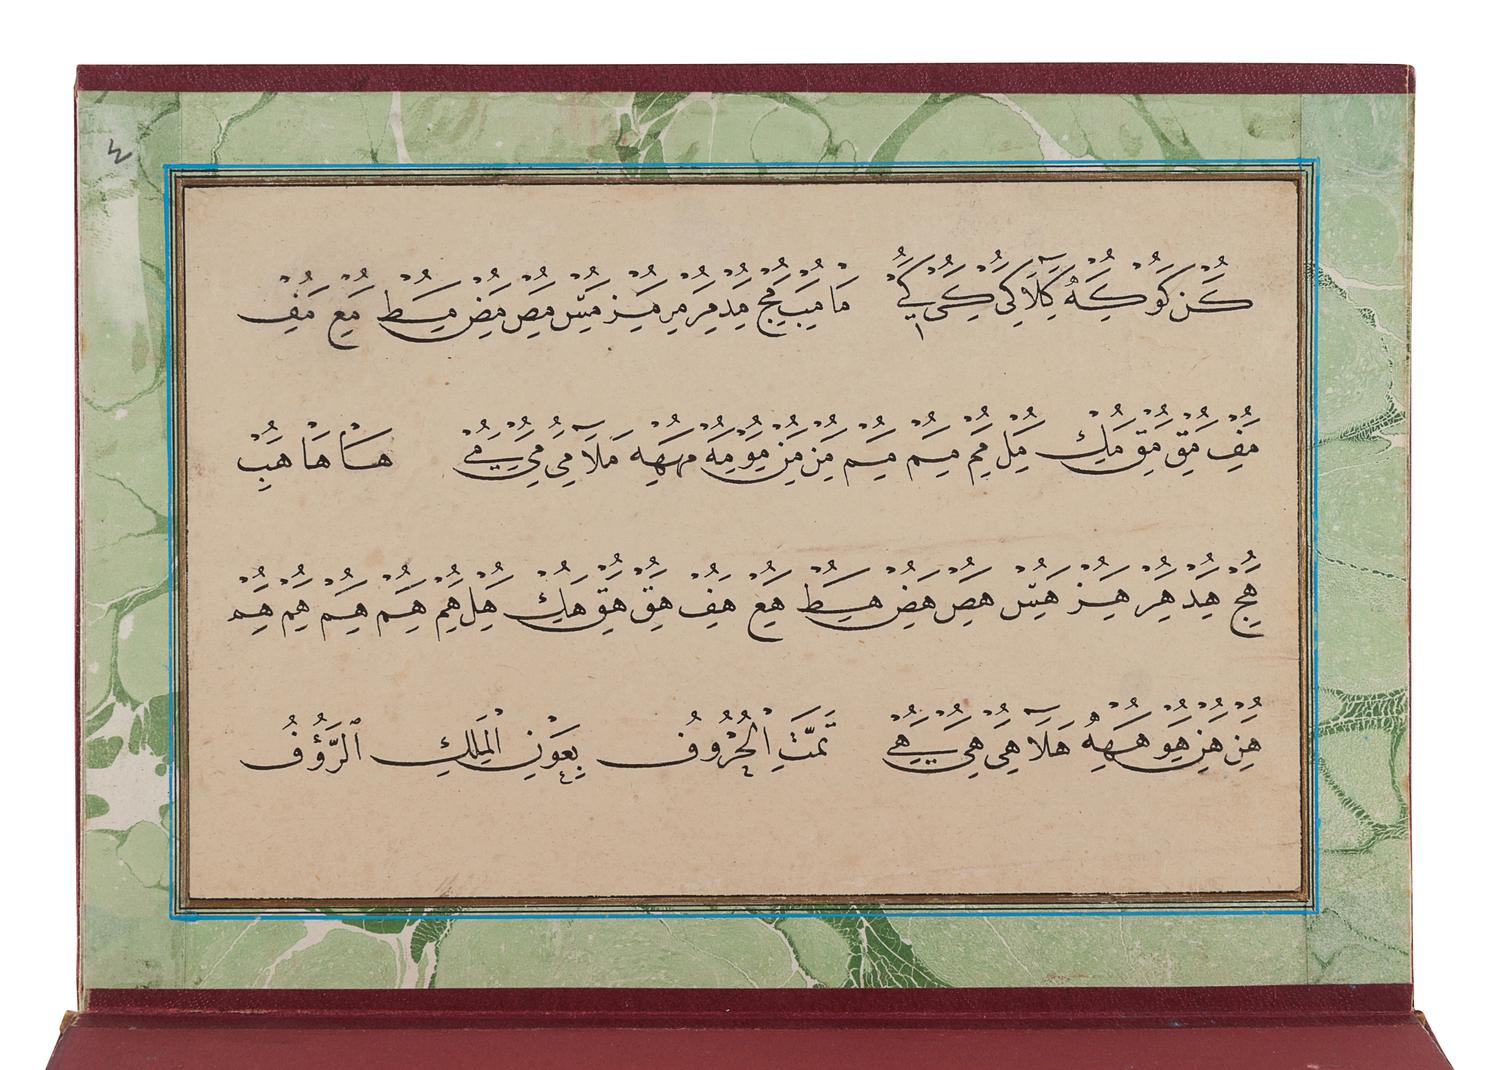 كن كو كه كلا كى كى كے ما مب مج مد مر مر مز مس مص مض مط مع مف
مف مق مق مك مل مم مم مم من من مو مه مه ملا مى مى مے ها ها هب
هج هد هر هز هس هص هض هط هع هف هق هق هك هل هم هم هم هم هم
هن هن هو هه هلا هى هى هے تَمَّتِ الْحُرُوفُ بِعَوْنِ الْمَلِكِ الرَّؤُفُ